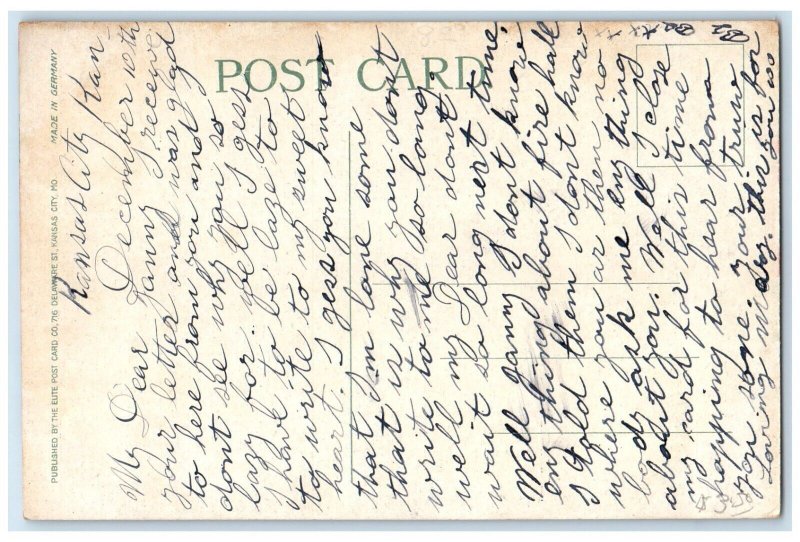 POST CARD
PUBLISHED BY THE ELITE POST CARD CO, 716 DELAWARE ST. KANSAS CITY, MO. MADE IN GERMANY
Kansas City Kan
December 10th
My Dear Janny I receved
your letter and was glad
to here from you and I
dont see why you so
lazy for. Well I gess
I have to be laze to
to write to my sweet
heart. I gess you know
that I'm lone some
that is why you dont
write to me so long.
well my Dear dont
wait so long next time.
Well Janny I dont know
eny thing about fire hall
I told them I dont know
where you ar then no
body ask me eny thing
about you. Well I close
my card for this time
happing to hear from
you sone. your trure
Loving
this is for
you